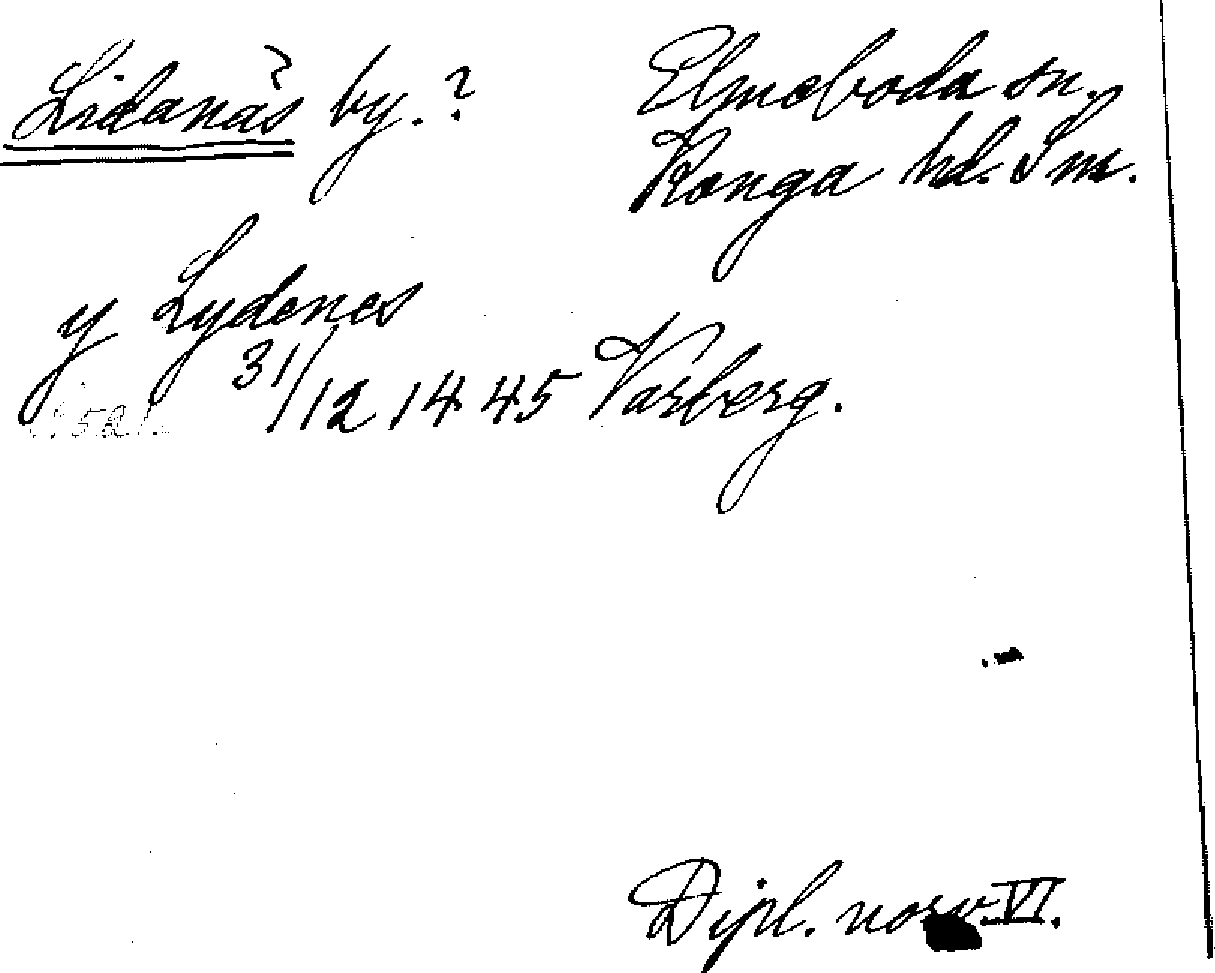 Lidanäs by.? Elmeboda sn.,
Konga hd. Sm.
y Lydenes
31/12 1445 Varberg.
Dipl. norv. VI.